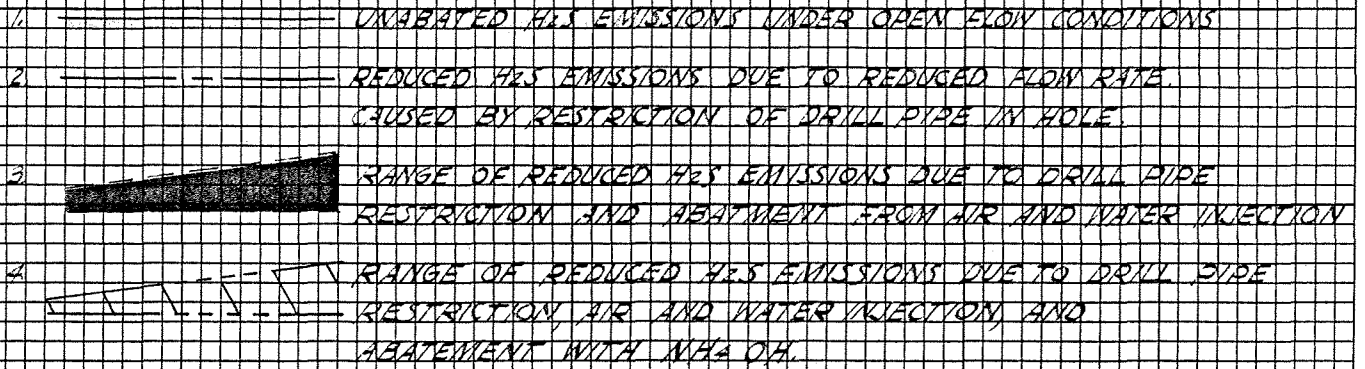 1. UNABATED H2S EMISSIONS UNDER OPEN FLOW CONDITIONS
2. REDUCED H2S EMISSIONS DUE TO REDUCED FLOW RATE.
CAUSED BY RESTRICTION OF DRILL PIPE IN HOLE.
3. RANGE OF REDUCED H2S EMISSIONS DUE TO DRILL PIPE
RESTRICTION AND ABATMENT FROM AIR AND WATER INJECTION
4. RANGE OF REDUCED H2S EMISSIONS DUE TO DRILL PIPE
RESTRICTION, AIR AND WATER INJECTION, AND
ABATEMENT WITH NH4 OH.